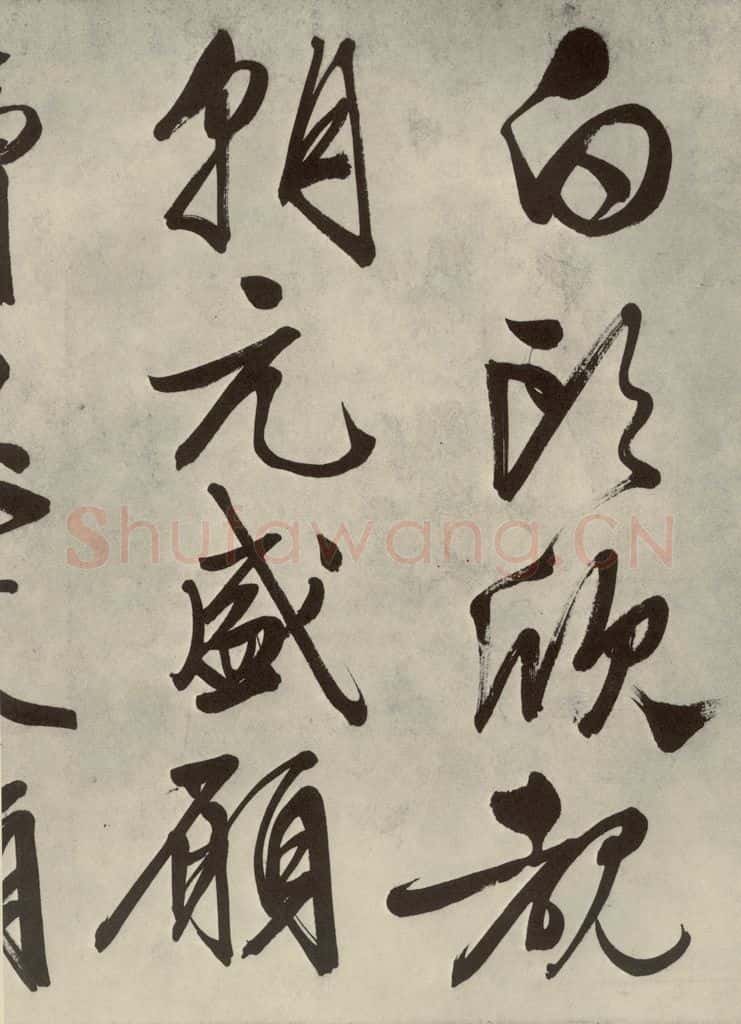 白頭欣覩
朝元盛願
Shufawang.CN